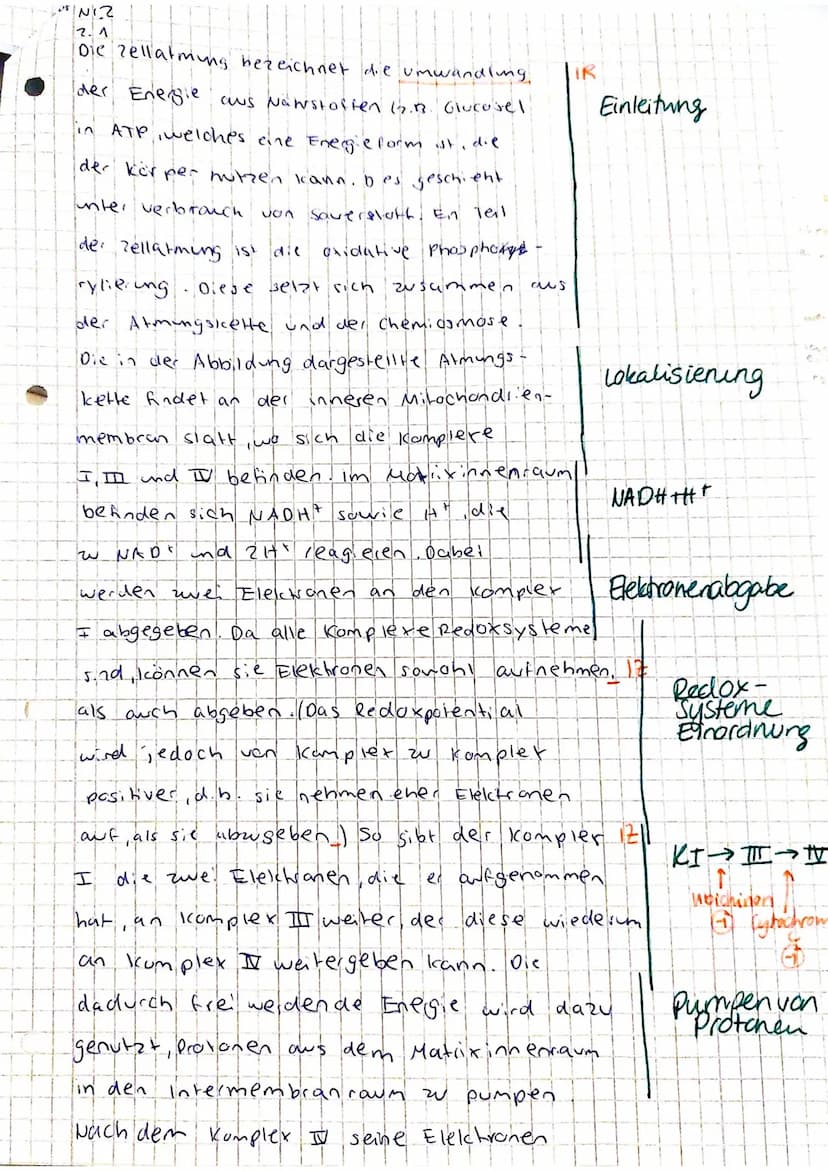 Nr.2
2.1
Die Zellatmung bezeichnet die Umwandlung
IR
der Energie aus Nährstoffen (z.B. Glucose)
Einleitung
in ATP, welches eine Energieform ist, die
der Körper nutzen kann. Des geschieht
unter verbrauch von Sauerstoff. Ein Teil
der Zellatmung ist die oxidative Phosphory-
rylierung. Diese setzt sich zusammen aus
der Atmungskette und der Chemiosmose.
Die in der Abbildung dargestellte Atmungs-
Lokalisierung
kette findet an der inneren Mitochondrien-
membran statt, wo sich die Komplexe
I, III und IV befinden. Im Matrixinnenraum
NADH+H+
befinden sich NADH+ sowie H+, die
zu NAD+ und 2H+ reagieren. Dabei
werden zwei Elektronen an den Komplex
Elektronenabgabe
I abgegeben. Da alle Komplexe Redoxsysteme
sind, können sie Elektronen sowohl aufnehmen,
IZ
als auch abgeben. (Das Redoxpotential
Redox-
Systeme
Einordnung
wird jedoch von Komplex zu Komplex
positiver, d.h. sie nehmen eher Elektronen
auf, als sie abzugeben.) So gibt der Komplex
IZ
KI → III → IV
I die zwei Elektronen, die er aufgenommen
Ubichinon
Cytochrom
c
hat, an Komplex III weiter, der diese wiederum
an Komplex IV weitergeben kann. Die
dadurch frei werdende Energie wird dazu
Pumpen von
Protonen
genutzt, Protonen aus dem Matrixinnenraum
in den Intermembranraum zu pumpen.
Nachdem Komplex IV seine Elektronen